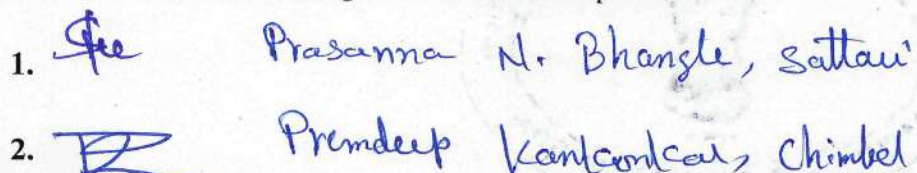 1. Prasanna N. Bhangle, Sattari
2. Premdeep Kankonkar, Chimbel